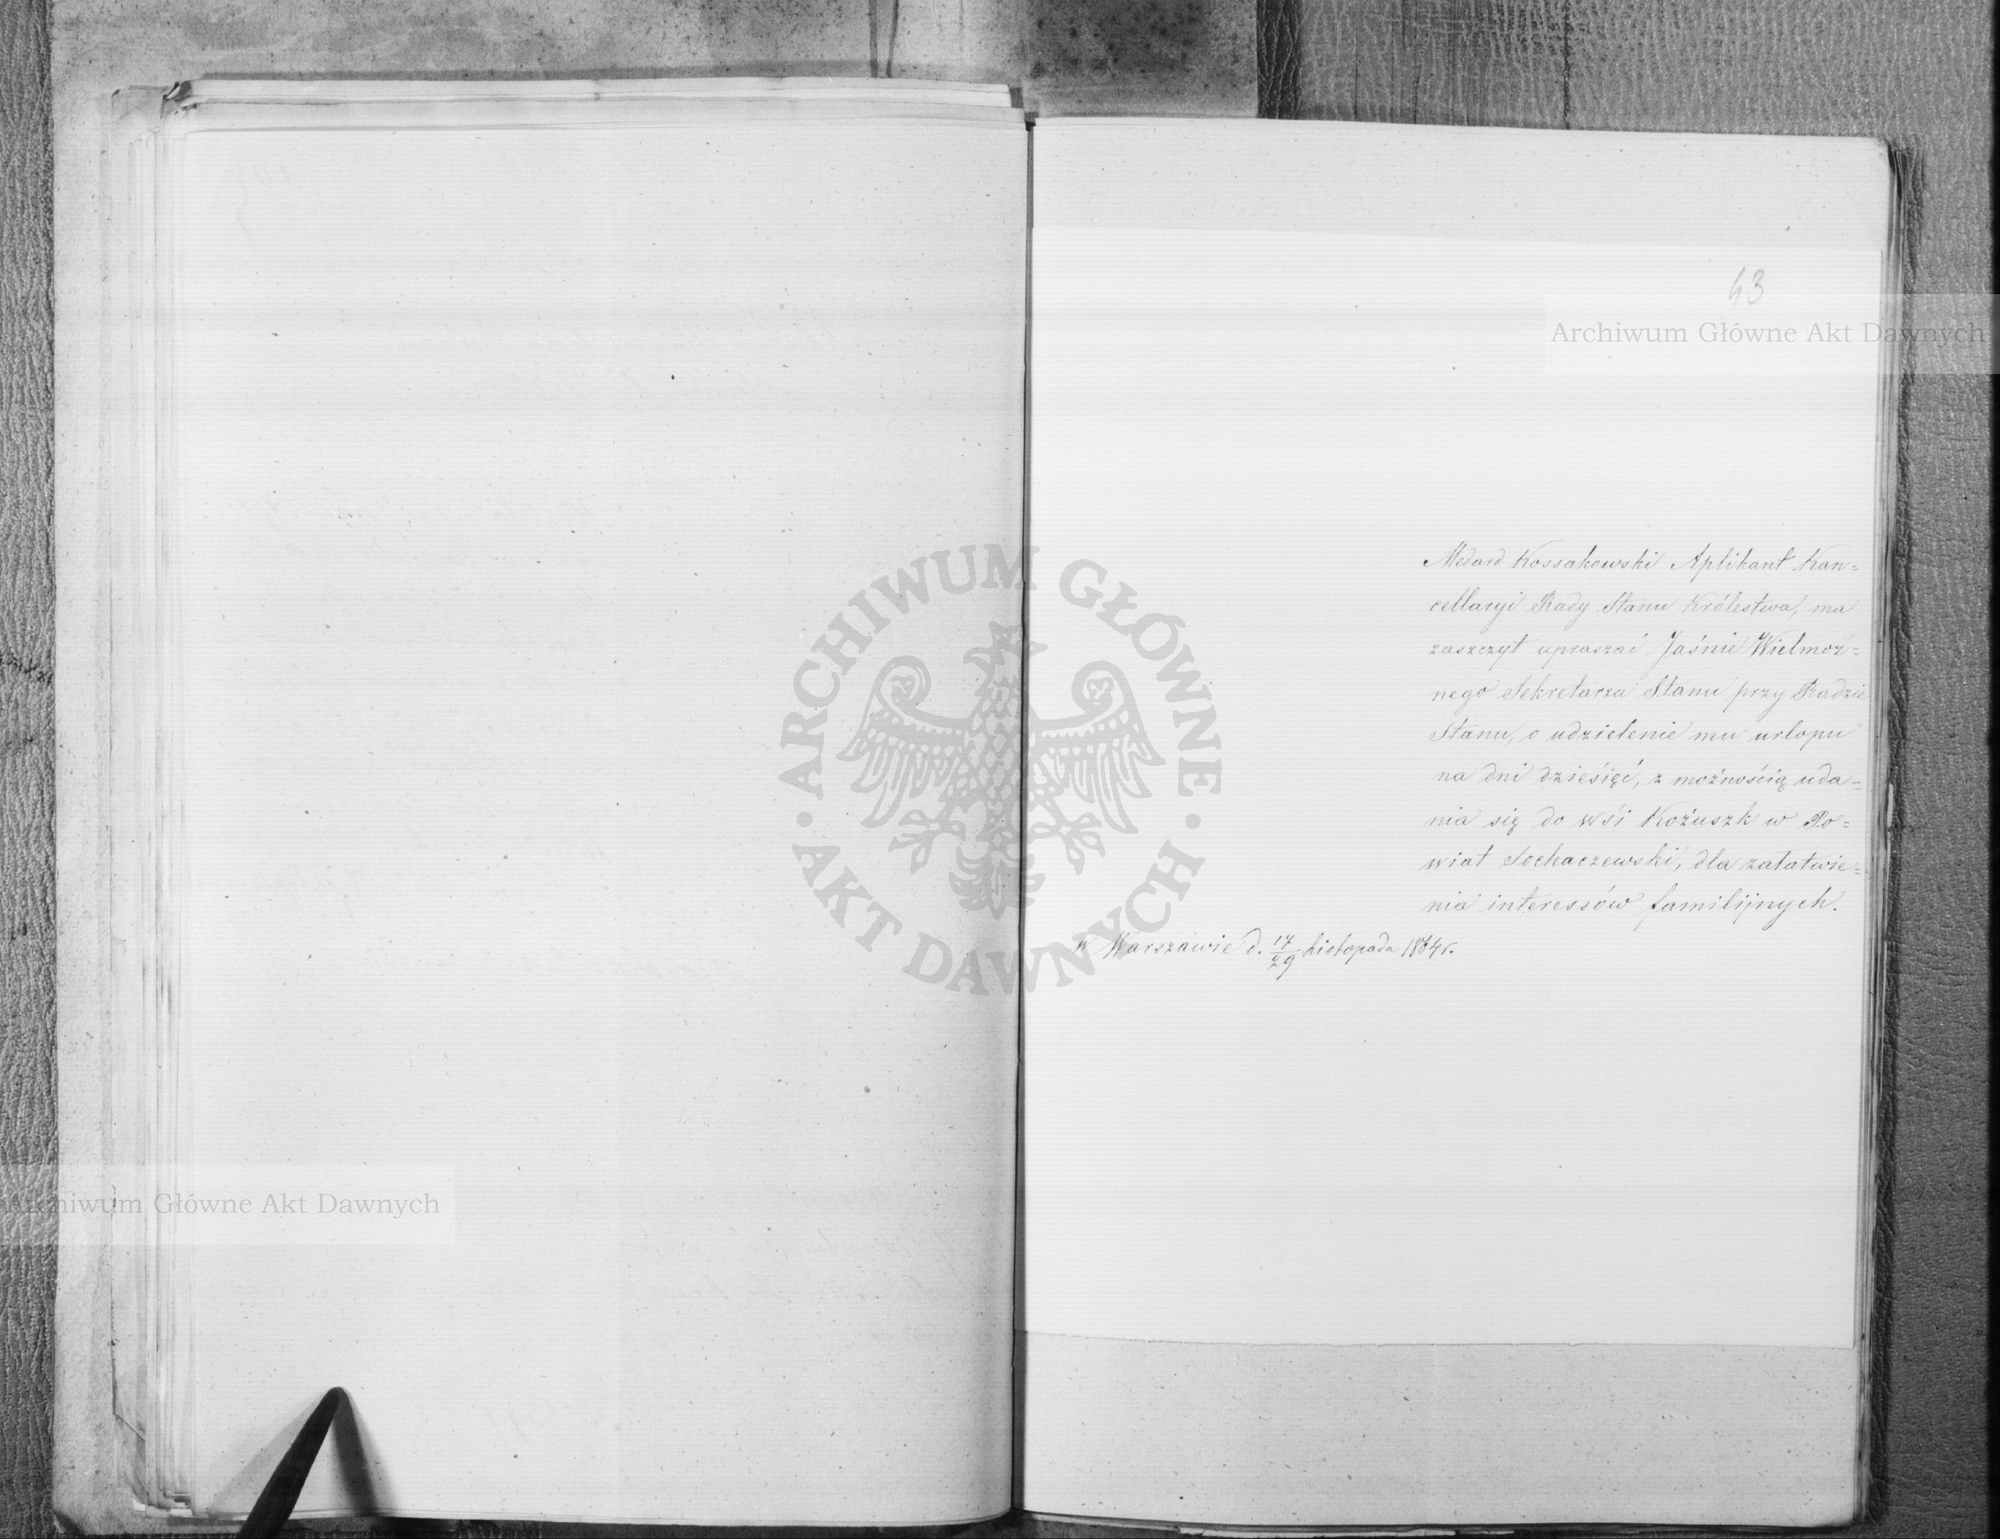 43
Archiwum Główne Akt Dawnych
Medard Kossakowski Aplikant Kan=
cellaryi Rady Stanu Królestwa, ma
zaszczyt upraszać Jaśnie Wielmoż=
nego Sekretarza Stanu przy Radzie
Stanu, o udzielenie mu urlopu
na dni dziesięć, z możnością uda=
nia się do wśi Kożuszk w Po=
wiat Sochaczewski, dla załatwie=
nia interessów familijnych.
w Warszawie d. 17/29 Listopada 1864 r.
ARCHIWUM GŁÓWNE
AKT DAWNYCH
Archiwum Główne Akt Dawnych